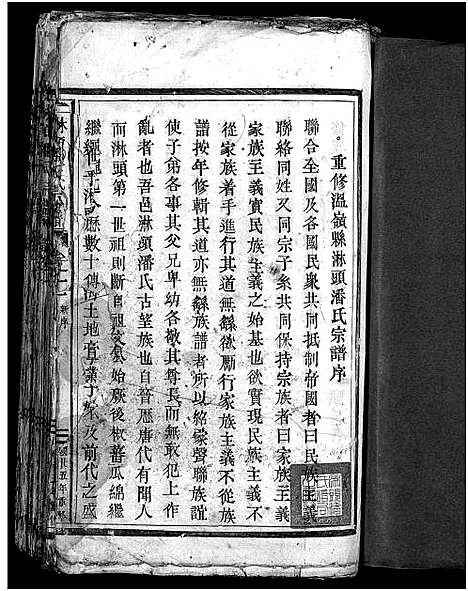 重修溫嶺縣淋頭潘氏宗譜序
聯合全國及各國民衆共同抵制帝國者曰民族主義
聯絡同姓又同宗子糸共同保持宗族者曰家族主義
家族主義實民族主義之始基也欲實現民族主義不
從家族着手進行其道無繇欲勵行家族主義不從族
譜按年修輯其道亦無繇族譜者所以綿蒙聲聯族誼
使子弟各事其父兄卑幼各敬其尊長而無敢犯上作
亂者也吾邑淋頭潘氏古望族也自晉歷唐代有聞人
而淋頭第一世祖則斷自 始厥後椒蕃瓜綿繼
繼繩 乎 歷數十傳 土地膏 及前代之盛
新序
國廿五年